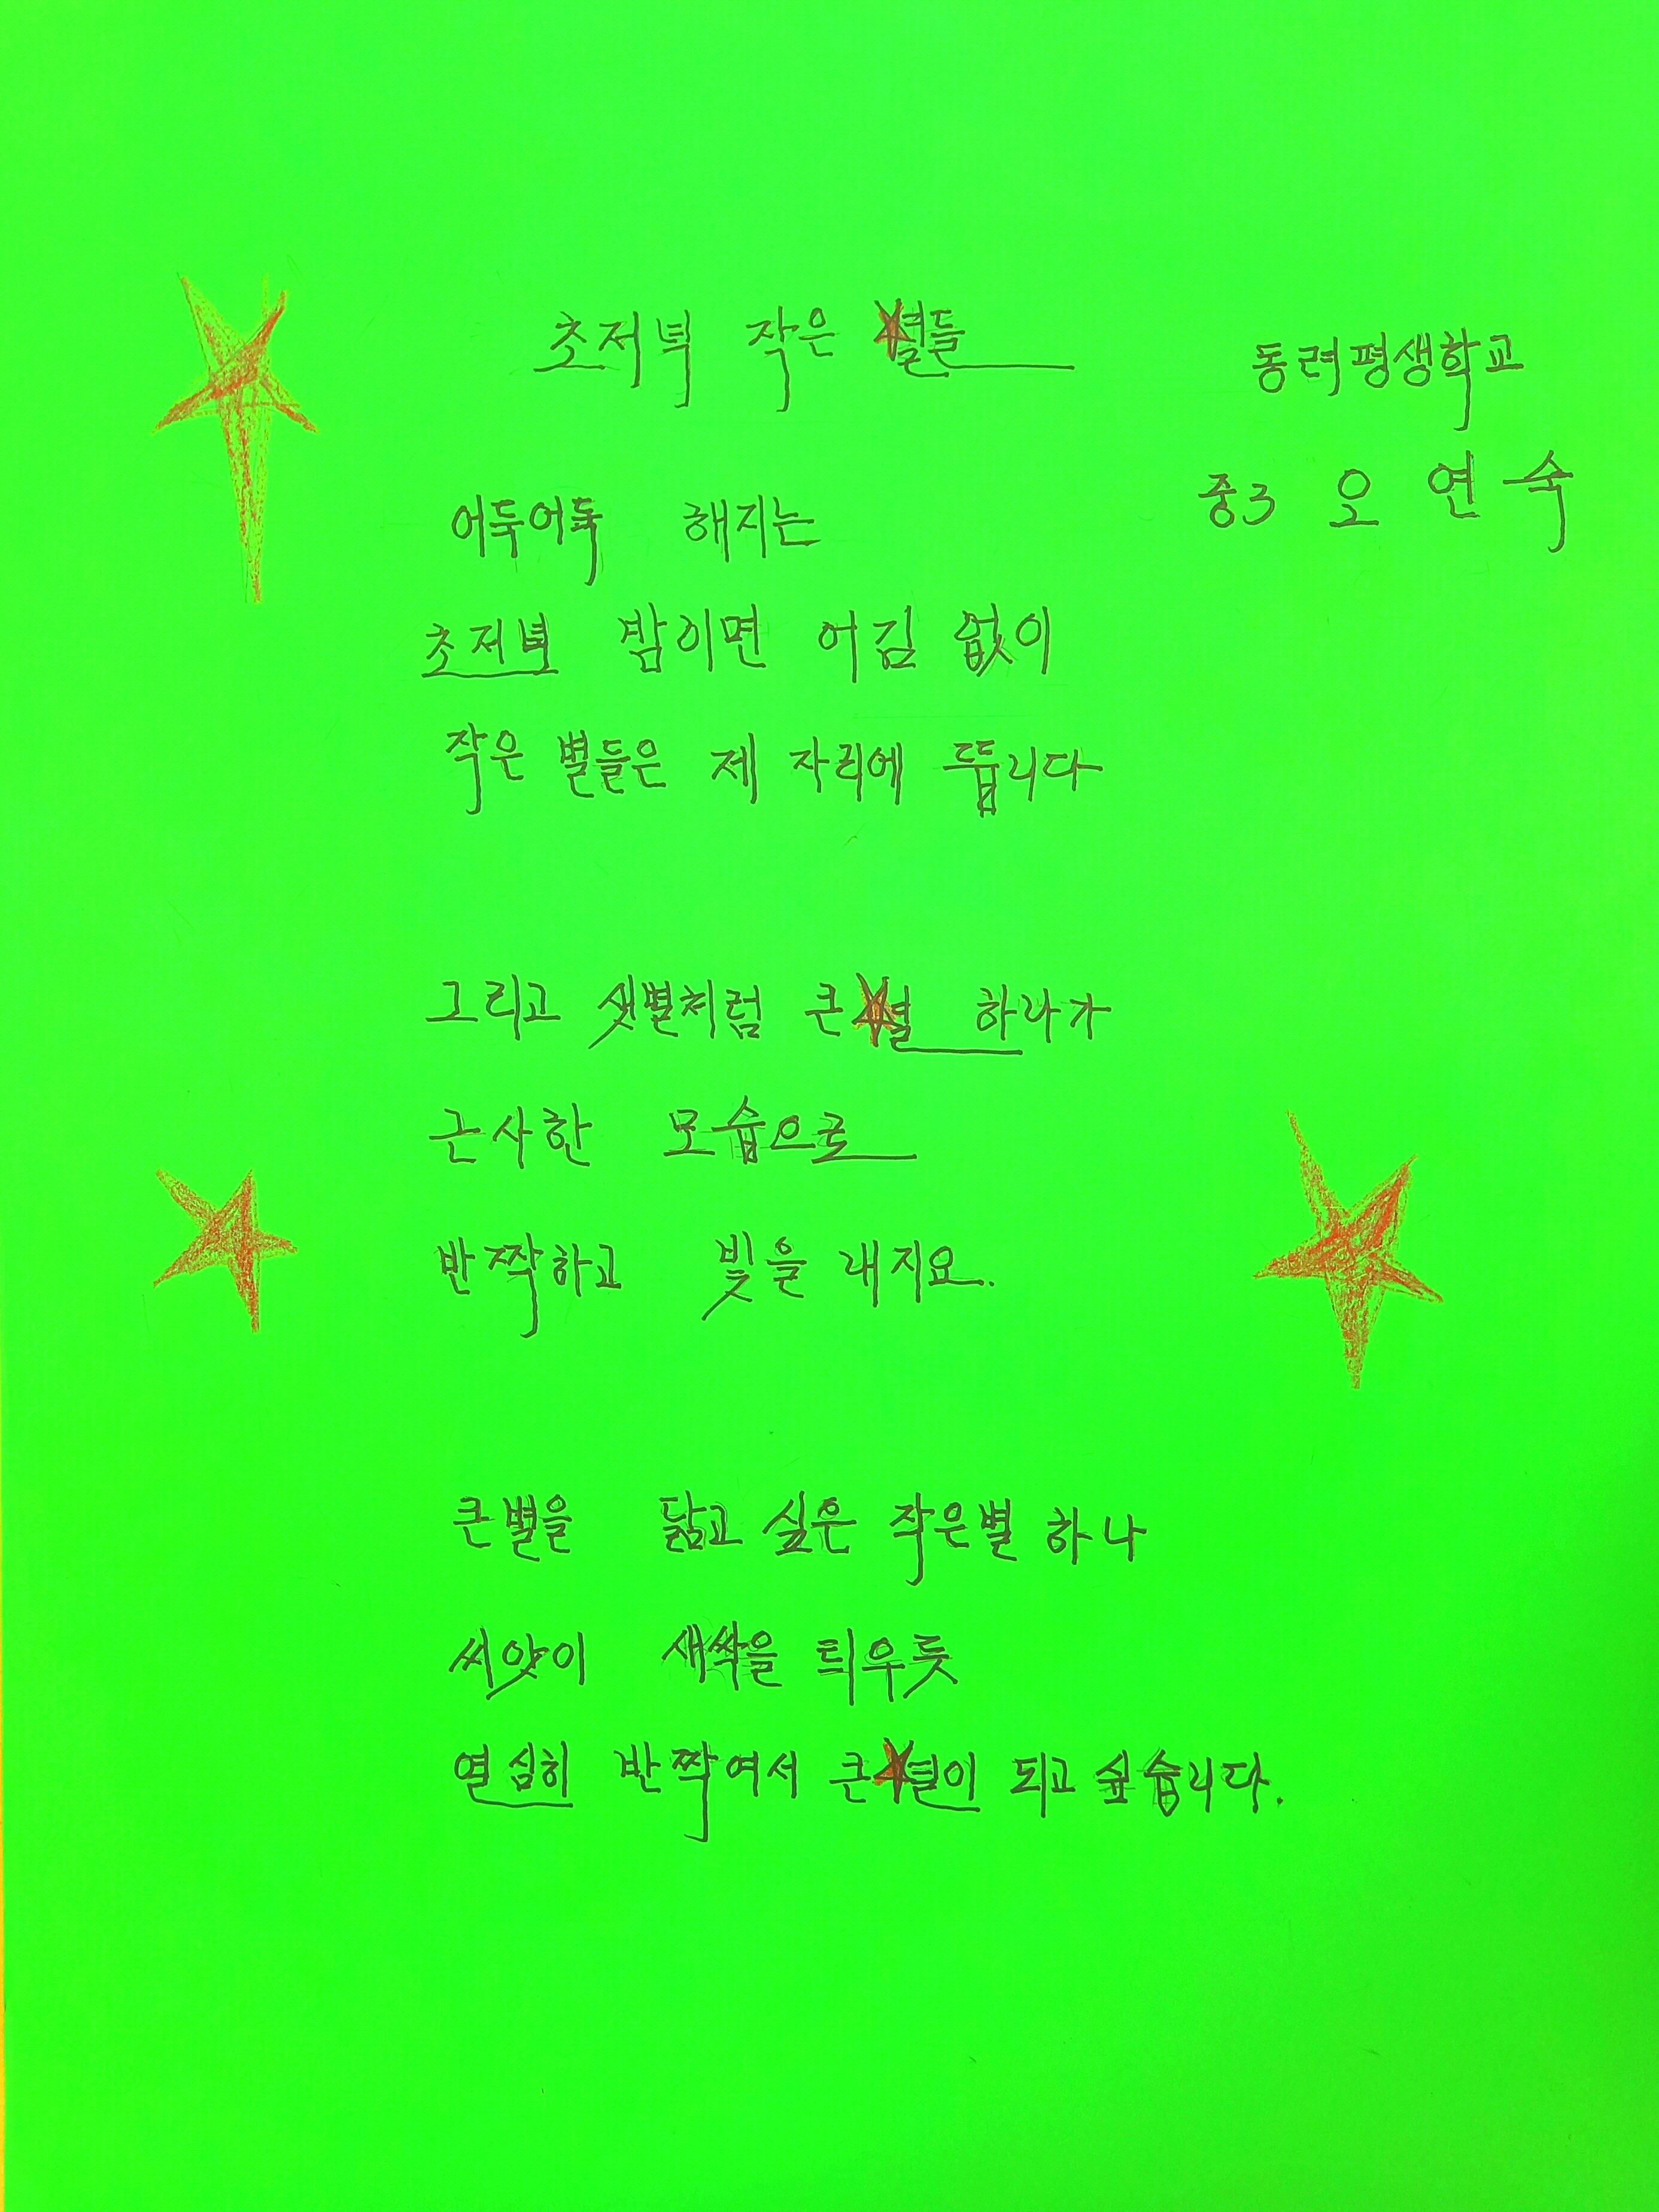 초저녁 작은 별들
동려평생학교
중3 오연숙
어둑어둑 해지는
초저녁 밤이면 어김 없이
작은 별들은 제 자리에 뜹니다
그리고 샛별처럼 큰별 하나가
근사한 모습으로
반짝하고 빛을 내지요.
큰별을 닮고 싶은 작은별 하나
씨앗이 새싹을 틔우듯
열심히 반짝여서 큰별이 되고 싶습니다.